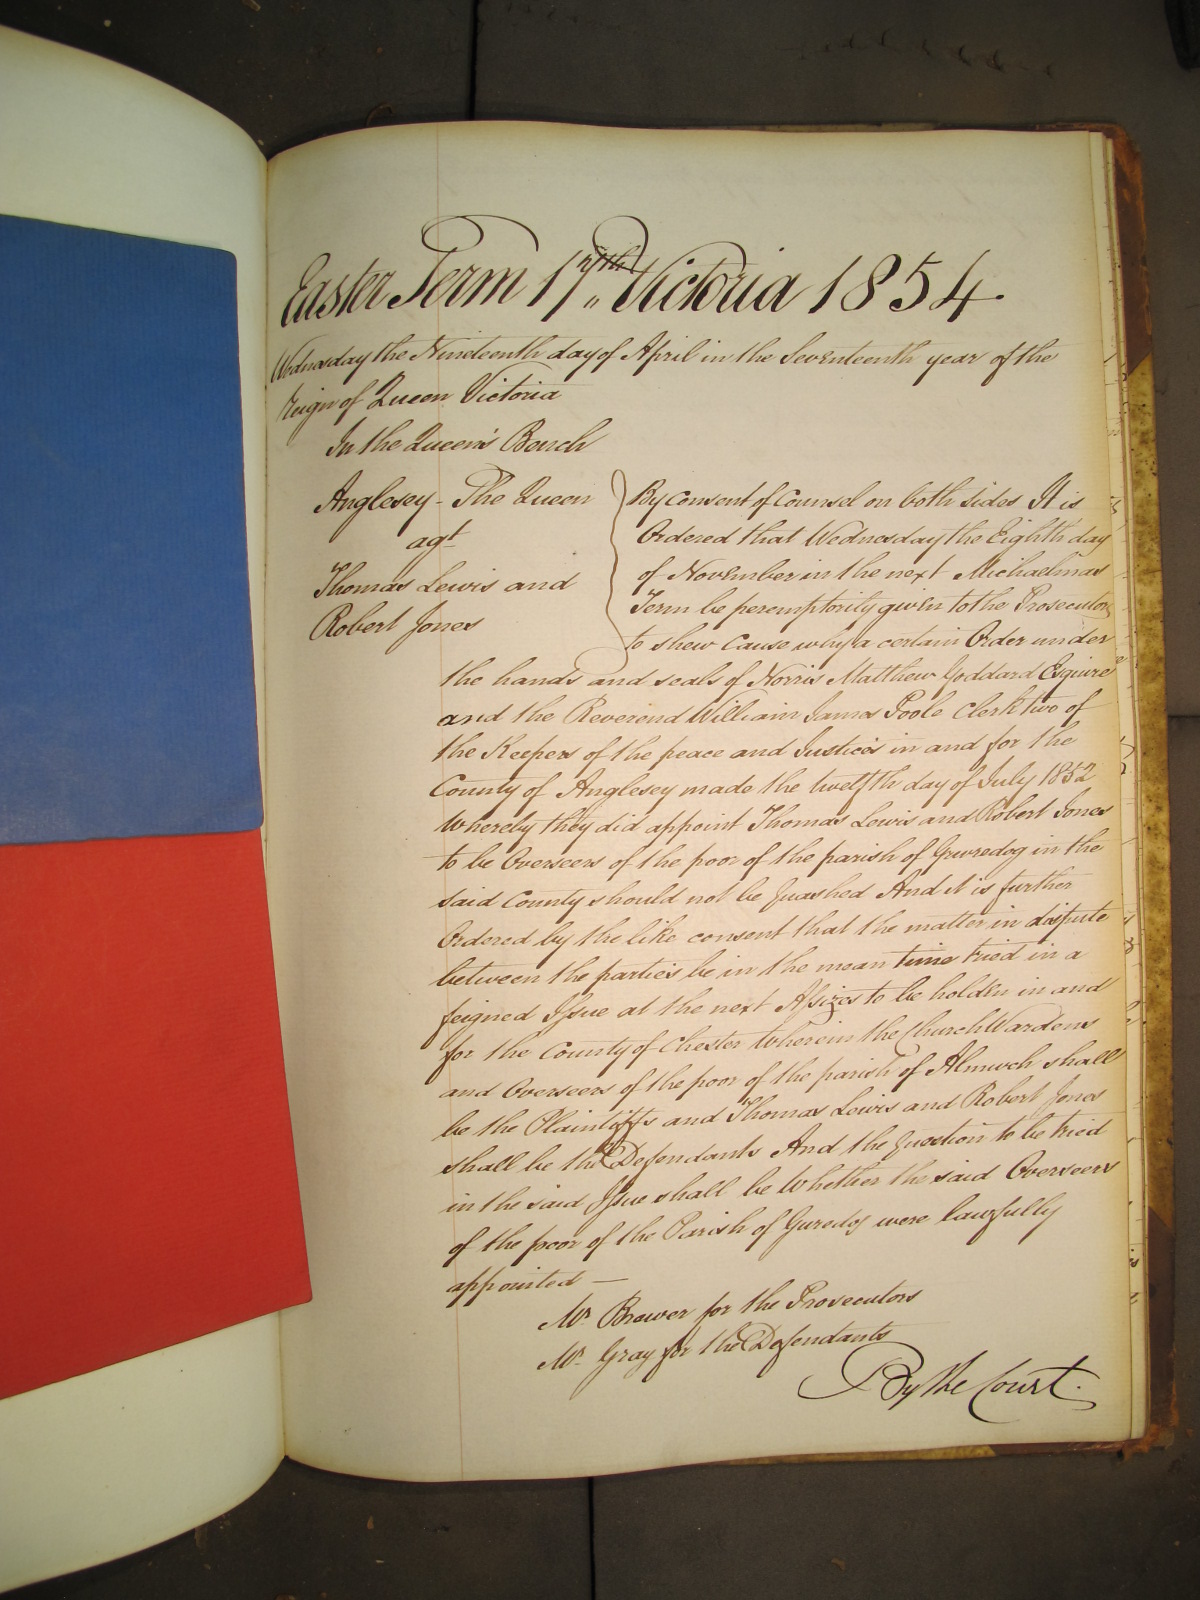 Easter Term 17th Victoria 1854.
Wednesday the Nineteenth day of April in the Seventeenth year of the
Reign of Queen Victoria
In the Queen's Bench
Anglesey - The Queen
agt
Thomas Lewis and
Robert Jones
By consent of Counsel on both sides It is
Ordered that Wednesday the Eighth day
of November in the next Michaelmas
Term be peremptorily given to the Prosecutors
to shew Cause why a certain Order under
the hands and seals of Norris Matthew Goddard Esquire
and the Reverend William James Poole Clerk two of
the Keepers of the peace and Justices in and for the
County of Anglesey made the twelfth day of July 1852
Whereby they did appoint Thomas Lewis and Robert Jones
to be Overseers of the poor of the parish of Gwredog in the
said County should not be Quashed And it is further
Ordered by the like consent that the matter in dispute
between the parties be in the mean time tried in a
feigned Issue at the next Assizes to be holden in and
for the County of Chester Wherein the ChurchWardens
and Overseers of the poor of the parish of Almwch shall
be the Plaintiffs and Thomas Lewis and Robert Jones
shall be the Defendants And the Question to be tried
in the said Issue shall be Whether the said Overseers
of the poor of the Parish of Guredog were lawfully
appointed —
Mr. Brewer for the Prosecutors
Mr. Gray for the Defendants
By the Court.